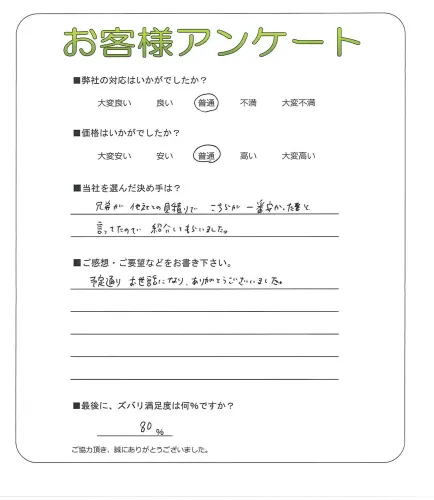 お客様アンケート
■弊社の対応はいかがでしたか？
大変良い 良い 普通 不満 大変不満
■価格はいかがでしたか？
大変安い 安い 普通 高い 大変高い
■当社を選んだ決め手は？
兄弟が 他社との見積りで こちらが 一番安かった事と
言ってたので 紹介してもらいました。
■ご感想・ご要望などをお書き下さい。
予定通り お世話になり、ありがとうございました。
■最後に、ズバリ満足度は何％ですか？
80 ％
ご協力頂き、誠にありがとうございました。